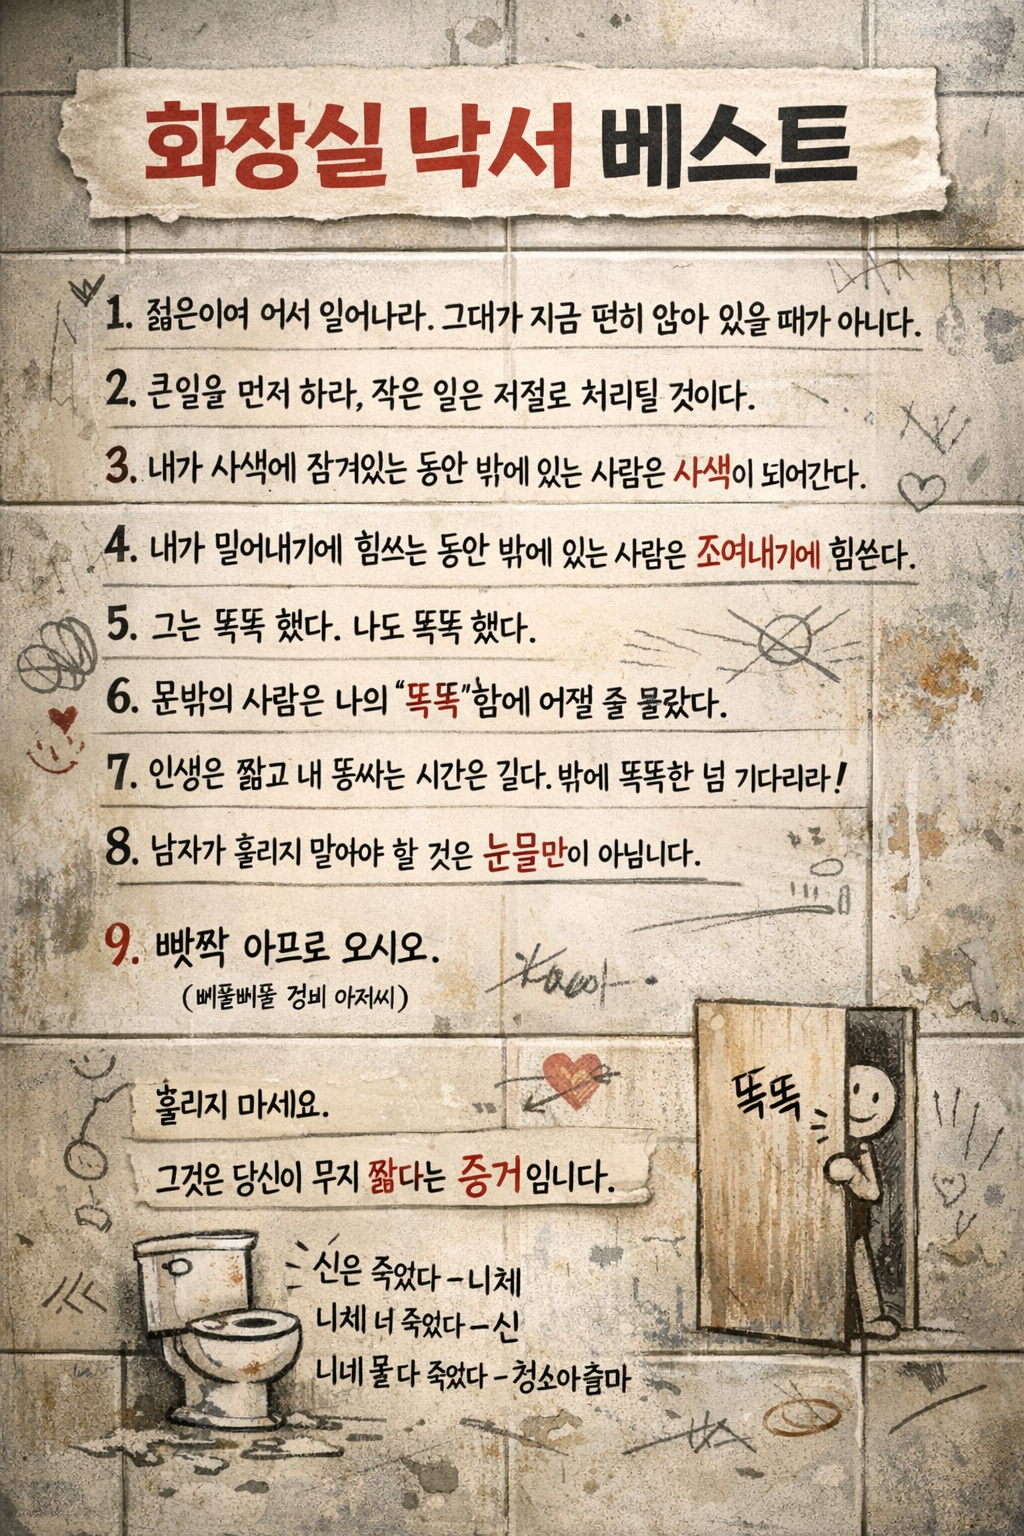 화장실 낙서 베스트
1. 젊은이여 어서 일어나라. 그대가 지금 편히 앉아 있을 때가 아니다.
2. 큰일을 먼저 하라, 작은 일은 저절로 처리될 것이다.
3. 내가 사색에 잠겨있는 동안 밖에 있는 사람은 사색이 되어간다.
4. 내가 밀어내기에 힘쓰는 동안 밖에 있는 사람은 조여내기에 힘쓴다.
5. 그는 똑똑 했다. 나도 똑똑 했다.
6. 문밖의 사람은 나의 “똑똑”함에 어쩔 줄 몰랐다.
7. 인생은 짧고 내 똥싸는 시간은 길다. 밖에 똑똑한 넘 기다리라!
8. 남자가 흘리지 말아야 할 것은 눈물만이 아닙니다.
9. 빳짝 아프로 오시오.
(삐뽈삐뽈 경비 아저씨)
흘리지 마세요.
그것은 당신이 무지 짧다는 증거입니다.
똑똑
신은 죽었다 – 니체
니체 너 죽었다 – 신
니네 둘 다 죽었다 – 청소아줌마